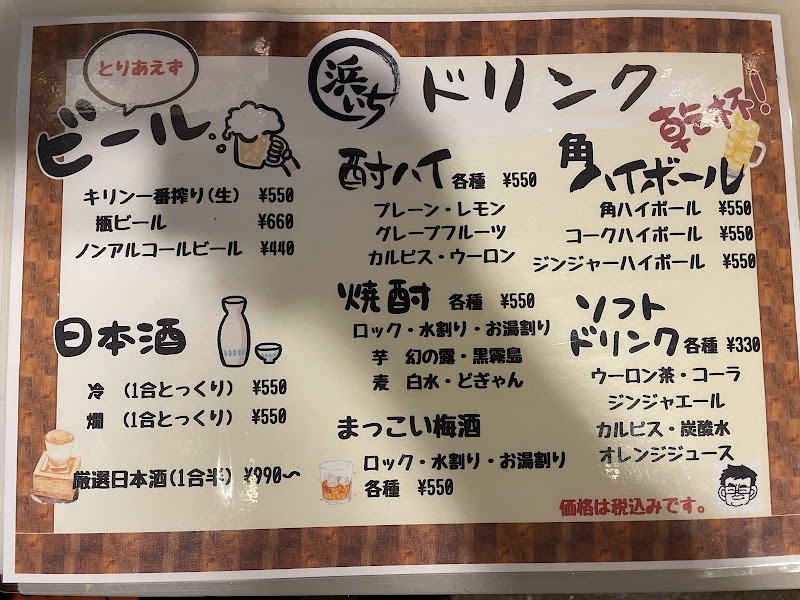 とりあえず
ビール
キリン一番搾り(生) ¥550
瓶ビール ¥660
ノンアルコールビール ¥440
日本酒
冷 (1合とっくり) ¥550
燗 (1合とっくり) ¥550
厳選日本酒(1合半) ¥990〜
浜いち
ドリンク
乾杯!
酎ハイ 各種 ¥550
プレーン・レモン
グレープフルーツ
カルピス・ウーロン
焼酎 各種 ¥550
ロック・水割り・お湯割り
芋 幻の露・黒霧島
麦 白水・どぎゃん
まっこい梅酒
ロック・水割り・お湯割り
各種 ¥550
角ハイボール
角ハイボール ¥550
コークハイボール ¥550
ジンジャーハイボール ¥550
ソフト
ドリンク 各種 ¥330
ウーロン茶・コーラ
ジンジャエール
カルピス・炭酸水
オレンジジュース
価格は税込みです。